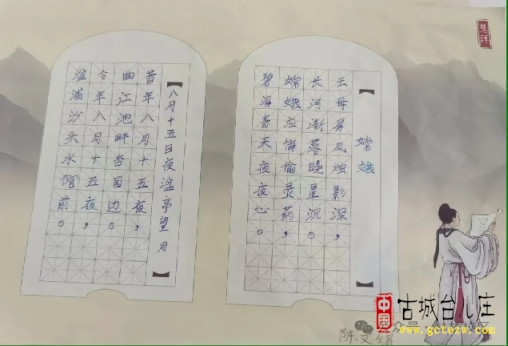 【嫦娥】
云母屏风烛影深，
长河渐落晓星沉。
嫦娥应悔偷灵药，
碧海青天夜夜心。
【八月十五日夜湓亭望月】
昔年八月十五夜，
曲江池畔杏园边。
今年八月十五夜，
湓浦沙头水馆前。
中国
古城台儿庄
www.gctezw.com